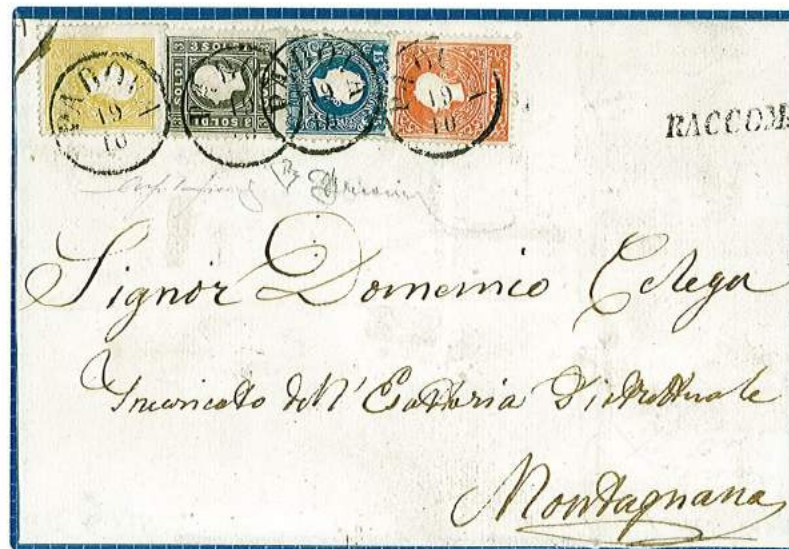 PADOVA
19
10
3 SOLDI
PADOVA
19
10
PADOVA
19
10
RACCOM
Signor Domenico Celega
Incaricato dell' Esattoria Distrettuale
Montagnana